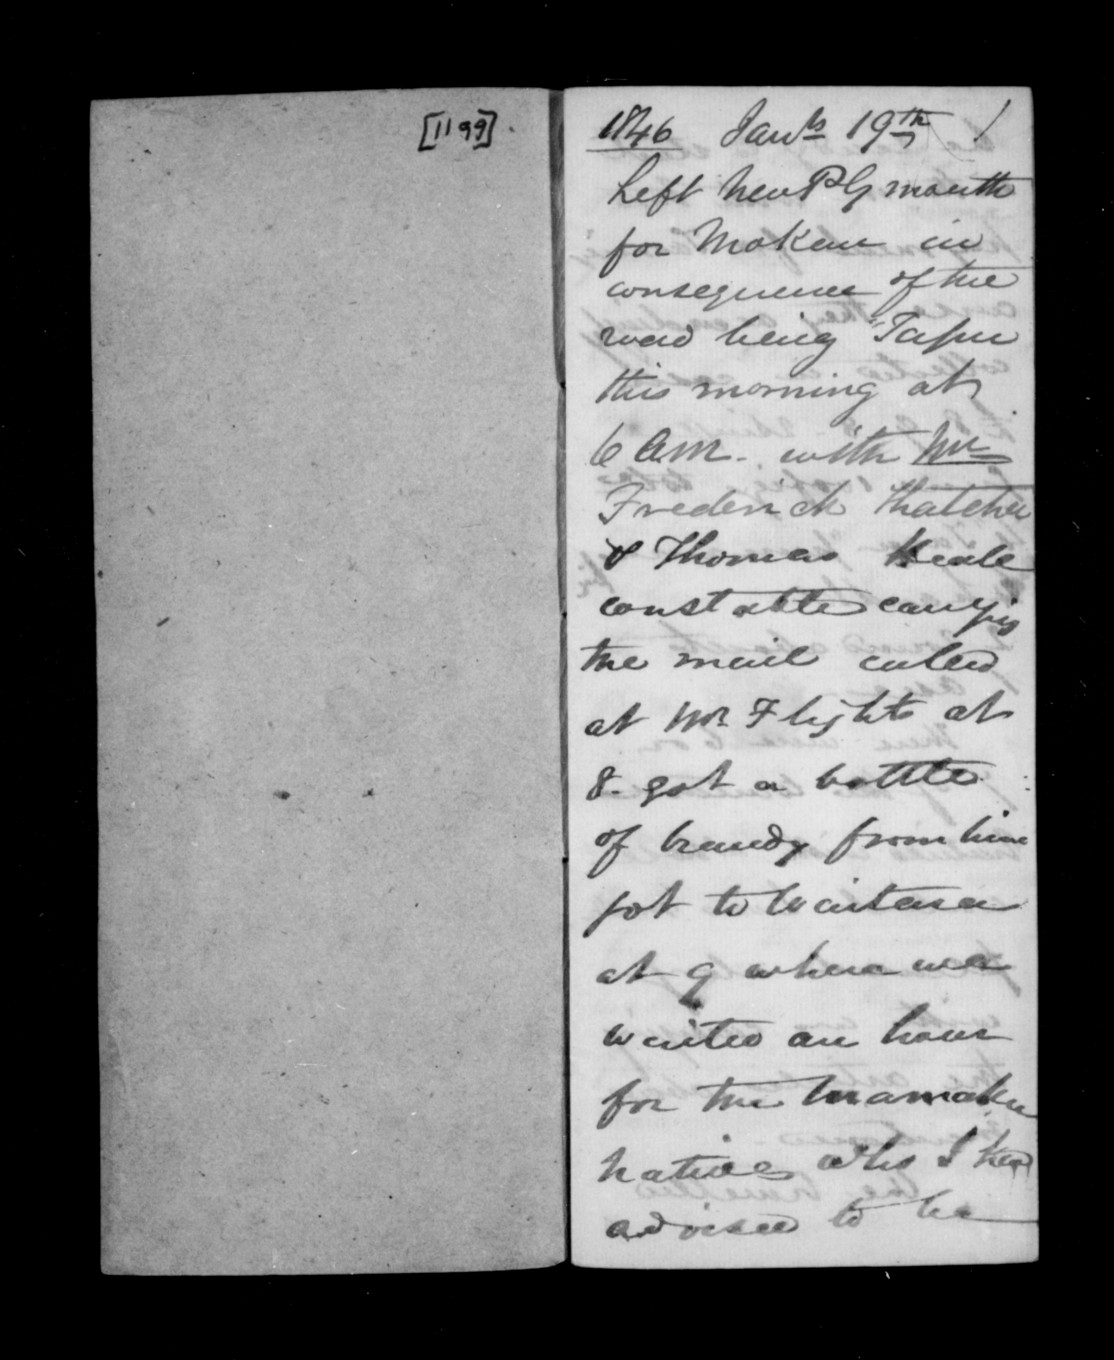 [1199]
1846 Jany 19th 1
Left New Plymouth
for Mokau in
consequence of the
road being "Tapu
this morning at
6 am. with Mr
Frederick Thatcher
& Thomas
constable carrying
the mail called
at Mr Flights at
8. got a bottle
of brandy from him
got to Waitara
at 9 where we
waited an hour
for the
natives who I had
advised to be